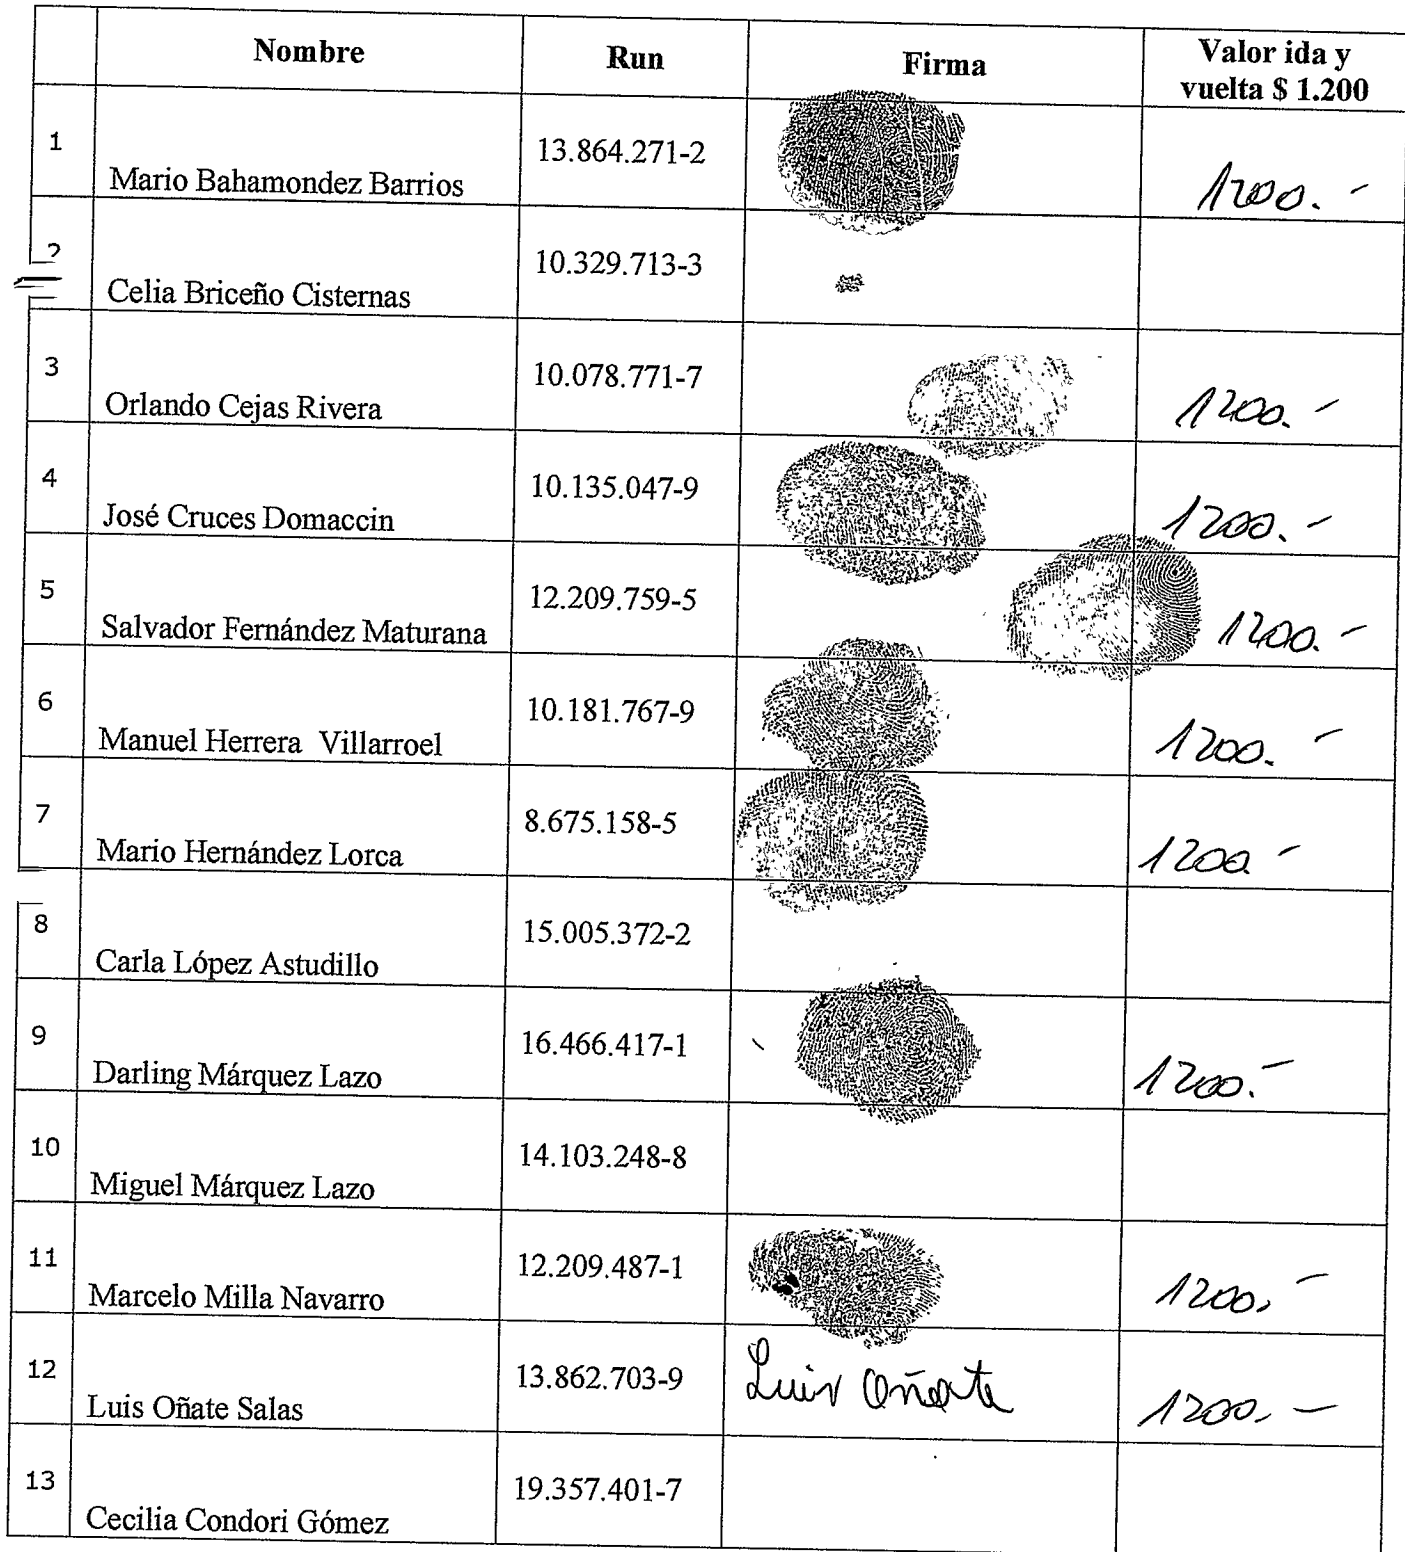 Nombre Run Firma Valor ida y
vuelta $ 1.200
1 Mario Bahamondez Barrios 13.864.271-2 1200.-
2 Celia Briceño Cisternas 10.329.713-3
3 Orlando Cejas Rivera 10.078.771-7 1200.-
4 José Cruces Domaccin 10.135.047-9 1200.-
5 Salvador Fernández Maturana 12.209.759-5 1200.-
6 Manuel Herrera Villarroel 10.181.767-9 1200.-
7 Mario Hernández Lorca 8.675.158-5 1200-
8 Carla López Astudillo 15.005.372-2
9 Darling Márquez Lazo 16.466.417-1 1200.-
10 Miguel Márquez Lazo 14.103.248-8
11 Marcelo Milla Navarro 12.209.487-1 1200,-
12 Luis Oñate Salas 13.862.703-9 Luis Oñate 1200,-
13 Cecilia Condori Gómez 19.357.401-7